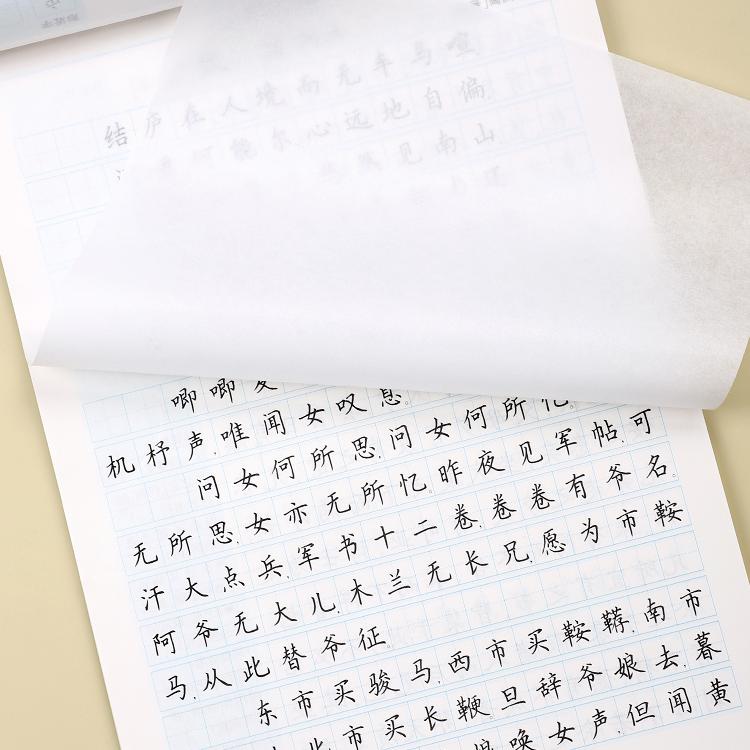 结庐在人境而无车马喧
何能尔心远地自偏
见南山
唧唧复
机杼声,唯闻女叹息。
问女何所思,问女何所忆。
无所思,女亦无所忆。昨夜见军帖,可
汗大点兵,军书十二卷,卷卷有爷名。
阿爷无大儿,木兰无长兄,愿为市鞍
马,从此替爷征。
东市买骏马,西市买鞍鞯,南市
北市买长鞭。旦辞爷娘去,暮
娘唤女声,但闻黄